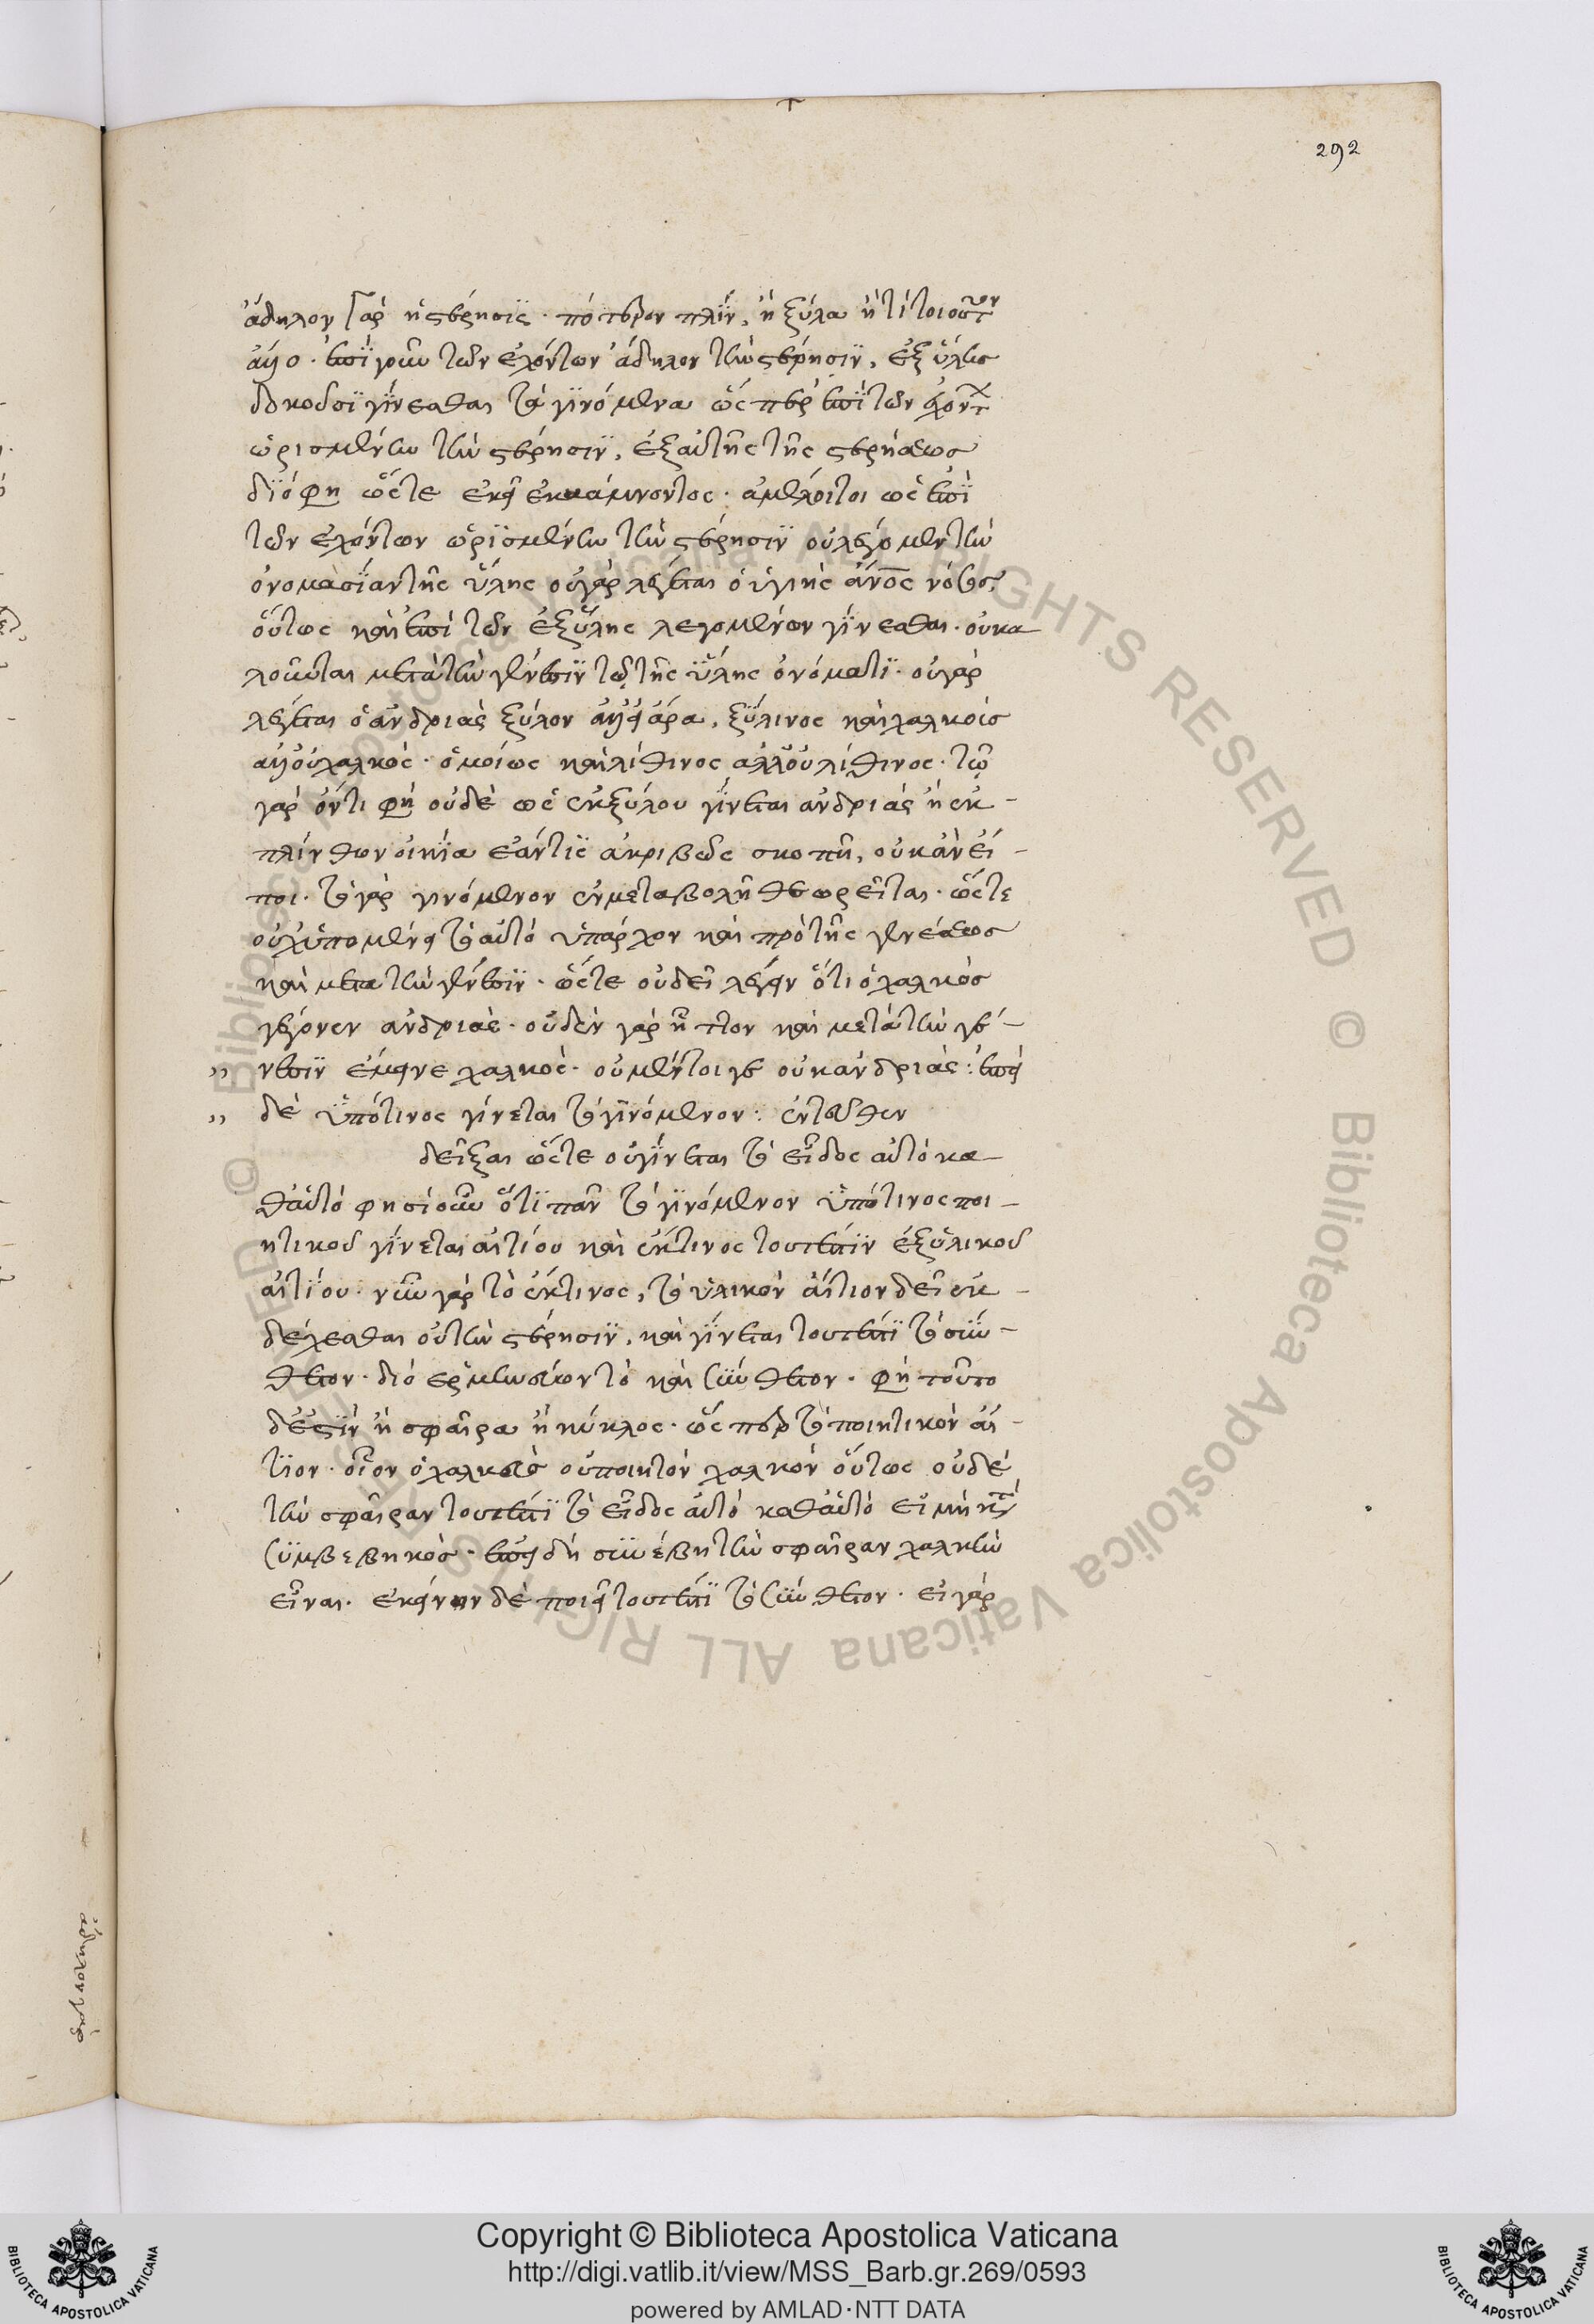 292
ἄδηλον γὰρ ἡ στέρησις · πότερον πλίν, ἢ ξύλα ἢ τί τοιοῦτον
ἄλλο · ἐπὶ γοῦν τῶν ἐχόντων ἄδηλον τὴν στέρησιν, ἐξ ὕλης
δοκοῦσι γίνεσθαι τὰ γινόμενα ὥσπερ ἐπὶ τῶν ἐχόντων
ὡρισμένην τὴν στέρησιν, ἐξ αὐτῆς τῆς στερήσεως
διό φησι ὥστε ἐκεῖ ἐκ κάμνοντος · ἀμέλοιτοι ὡς ἐπὶ
τῶν ἐχόντων ὡρισμένην τὴν στέρησιν οὐ λέγομεν τὴν
ὀνομασίαν τῆς ὕλης οὐ γὰρ λέγεται ὁ ὑγιὴς ἄνος νόσος,
οὕτως καὶ ἐπὶ τῶν ἐξ ὕλης λεγομένων γίνεσθαι · οὐ κα
λοῦνται μετὰ τὴν γένεσιν τῷ τῆς ὕλης ὀνόματι · οὐ γὰρ
λέγεται ὁ ἀνδριὰς ξύλον ἀλλὰ ἄρα, ξύλινος καὶ χαλκοῖς
ἀλλ' οὐ χαλκός · ὁμοίως καὶ λίθινος ἀλλ' οὐ λίθινος · τῷ
γὰρ ὄντι φησὶ οὐδὲ ὡς ἐκ ξύλου γίνεται ἀνδριὰς ἢ ἐκ -
πλίνθων οἰκία ἐάν τις ἀκριβῶς σκοπῇ, οὐκ ἂν εἴ -
ποι · τὸ γὰρ γινόμενον ἐν μεταβολῇ θεωρεῖται · ὥστε
οὐχ ὑπομένει τὸ αὐτὸ ὑπάρχον καὶ πρὸ τῆς γενέσεως
καὶ μετα τὴν γένεσιν · ὥστε οὐ δεῖ λέγειν ὅτι ὁ χαλκὸς
γέγονεν ἀνδριάς · οὐδὲν γὰρ ἧττον καὶ μετὰ τὴν γέ -
νεσιν ἔμεινε χαλκός · οὐ μέντοι γε οὐκ ἀνδριάς : ἐπεὶ
δὲ ὑπό τινος γίνεται τὸ γινόμενον : ἐντεῦθεν
δεῖξαι ὥστε οὐ γίνεται τὸ εἶδος αὐτὸ κα -
θ' αὑτό φησὶ οὖν ὅτι πᾶν τὸ γινόμενον ὑπό τινος ποι -
ητικοῦ γίνεται αἰτίου καὶ ἔκ τινος τουτέστιν ἐξ ὑλικοῦ
αἰτίου · νῦν γὰρ τὸ ἔκ τινος, τὸ ὑλικὸν αἴτιον δεῖ ἐκ -
δέχεσθαι οὐ τὴν στέρησιν, καὶ γίνεται τουτέστι τὸ σύν -
θετον · διὸ ἑρμηνεύων τὸ καὶ σύνθετον · φησὶ τοῦτο
δέ ἐστιν ἢ σφαῖρα ἢ κύκλος · ὥσπερ τὸ ποιητικὸν αἴ -
τιον · οἷον ὁ χαλκεὺς οὐ ποιεῖ τὸν χαλκὸν οὕτως οὐδὲ
τὴν σφαῖραν τουτέστι τὸ εἶδος αὐτὸ καθ' αὑτὸ εἰ μὴ κατὰ
συμβεβηκός · ἐπειδὴ συνέβη τὴν σφαῖραν χαλκῆν
εἶναι · ἐκείνην δὲ ποιεῖ τουτέστι τὸ σύνθετον · εἰ γὰρ
ἄδηλον γὰρ
© Biblioteca Apostolica Vaticana ALL RIGHTS RESERVED © Biblioteca Apostolica Vaticana ALL RIGHTS RESERVED
Copyright © Biblioteca Apostolica Vaticana
http://digi.vatlib.it/view/MSS_Barb.gr.269/0593
powered by AMLAD·NTT DATA
BIBLIOTECA APOSTOLICA VATICANA
BIBLIOTECA APOSTOLICA VATICANA